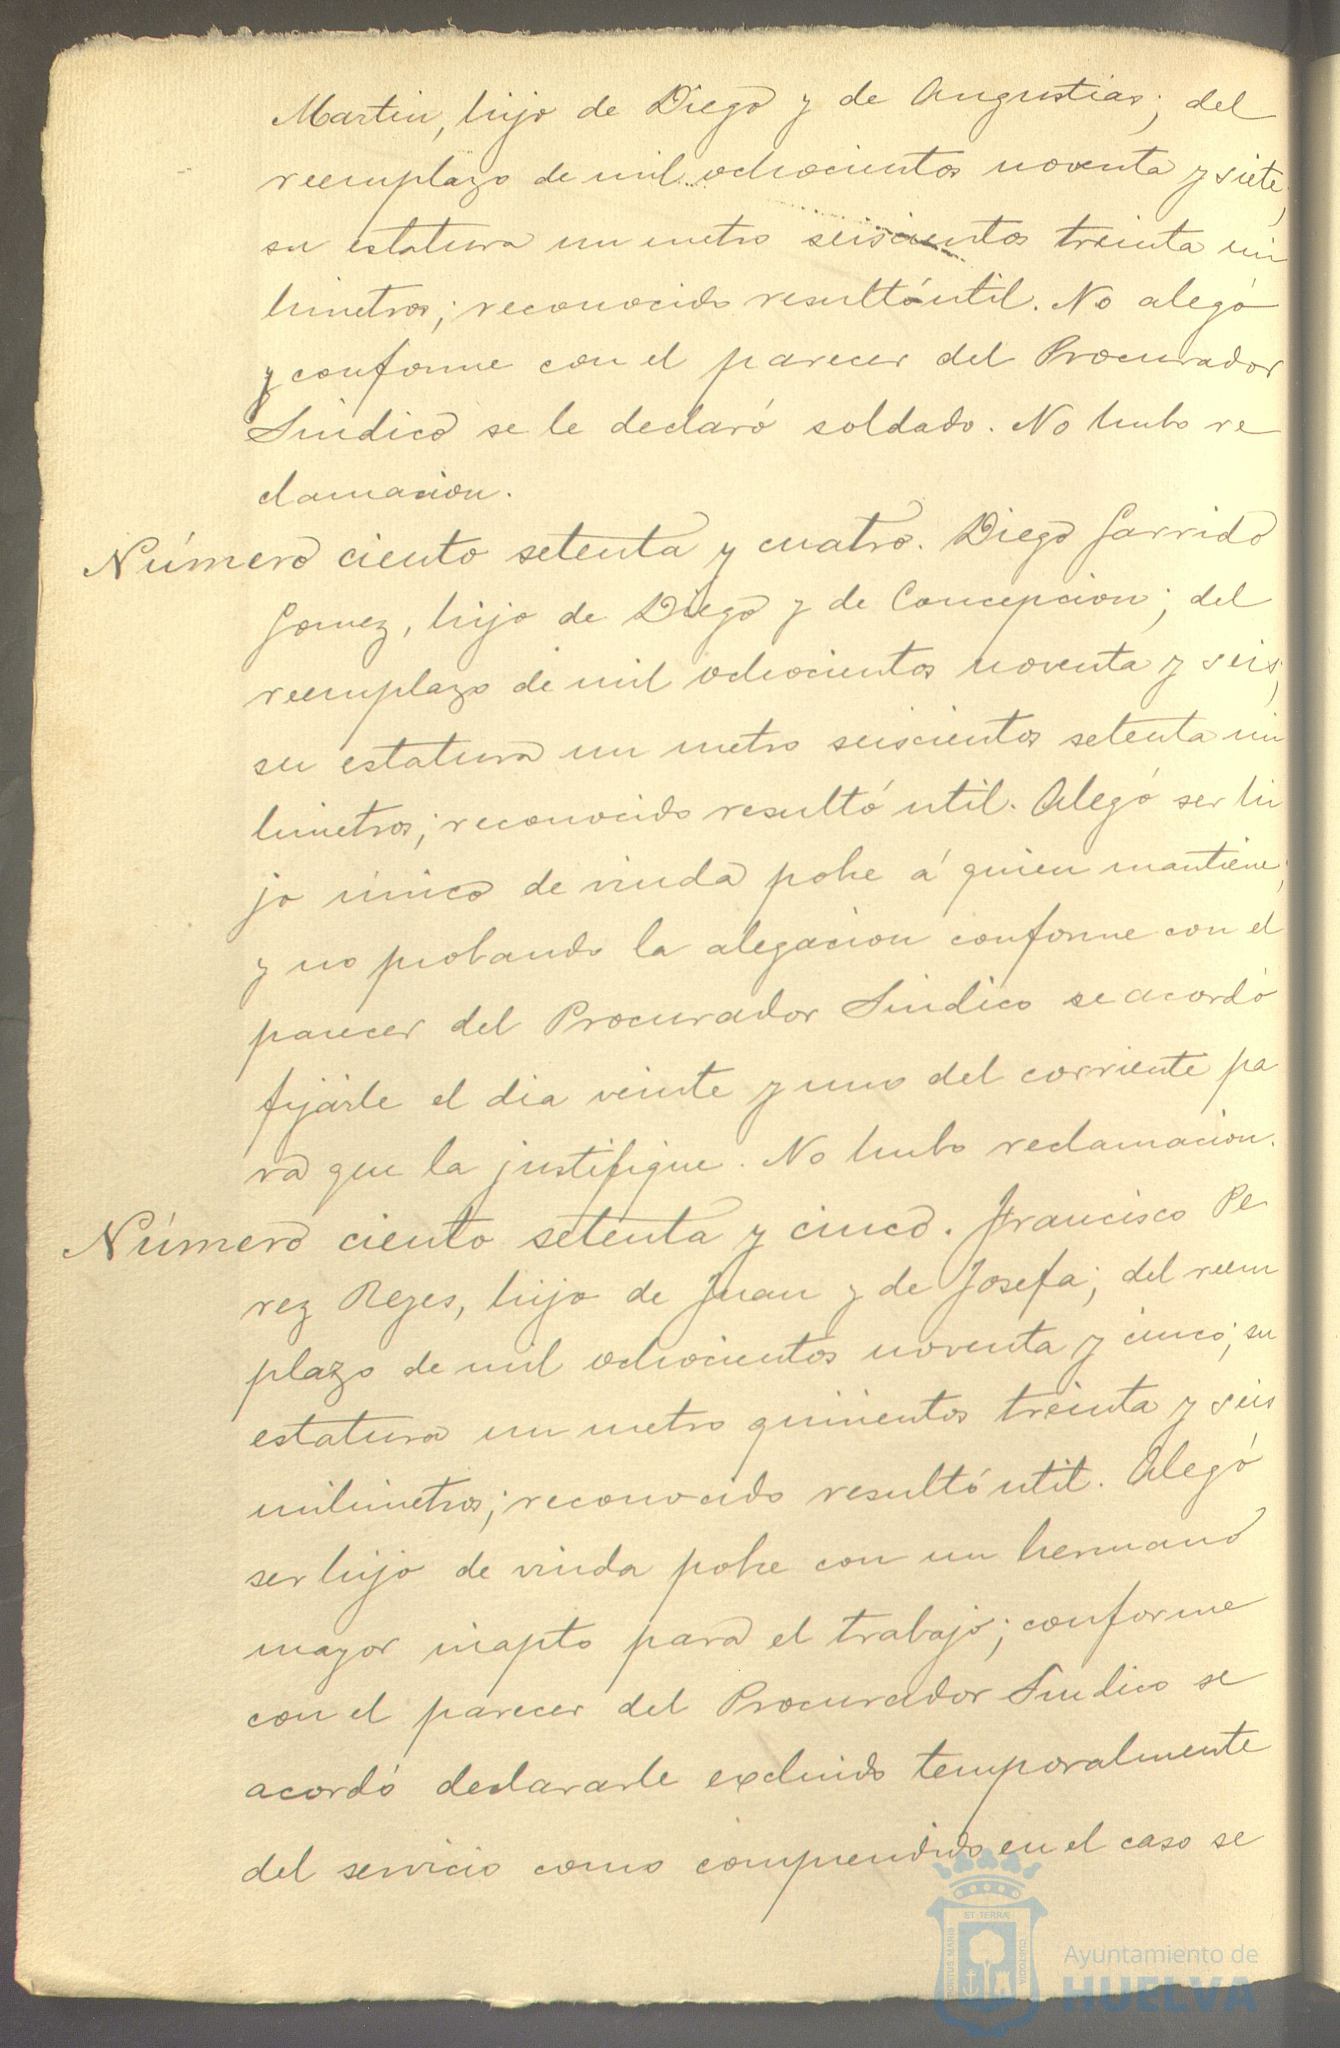 Martin, hijo de Diego y de Angustias; del
reemplazo de mil ochocientos noventa y siete;
su estatura un metro seiscientos treinta mi
límetros; reconocido resultó útil. No alegó
y conforme con el parecer del Procurador
Sindico se le declaró soldado. No hubo re
clamacion.
Número ciento setenta y cuatro. Diego Garrido
Gomez, hijo de Diego y de Concepcion; del
reemplazo de mil ochocientos noventa y seis;
su estatura un metro seiscientos setenta mi
limetros; reconocido resultó util. Alegó ser hi
jo único de viuda pobre á quien mantiene;
y no probando la alegacion conforme con el
parecer del Procurador Sindico se acordó
fijárle el dia veinte y uno del corriente pa
ra que la justifique. No hubo reclamacion.
Número ciento setenta y cinco. Francisco Pe
rez Reyes, hijo de Juan y de Josefa; del reem
plazo de mil ochocientos noventa y cinco; su
estatura un metro quinientos treinta y seis
milimetros; reconocido resultó util. Alegó
ser hijo de viuda pobre con un hermano
mayor inapto para el trabajo; conforme
con el parecer del Procurador Sindico se
acordó declararle excluido temporalmente
del servicio como comprendido en el caso se
PORTUS MARIS
ET TERRÆ
CUSTODIA
Ayuntamiento de
HUELVA